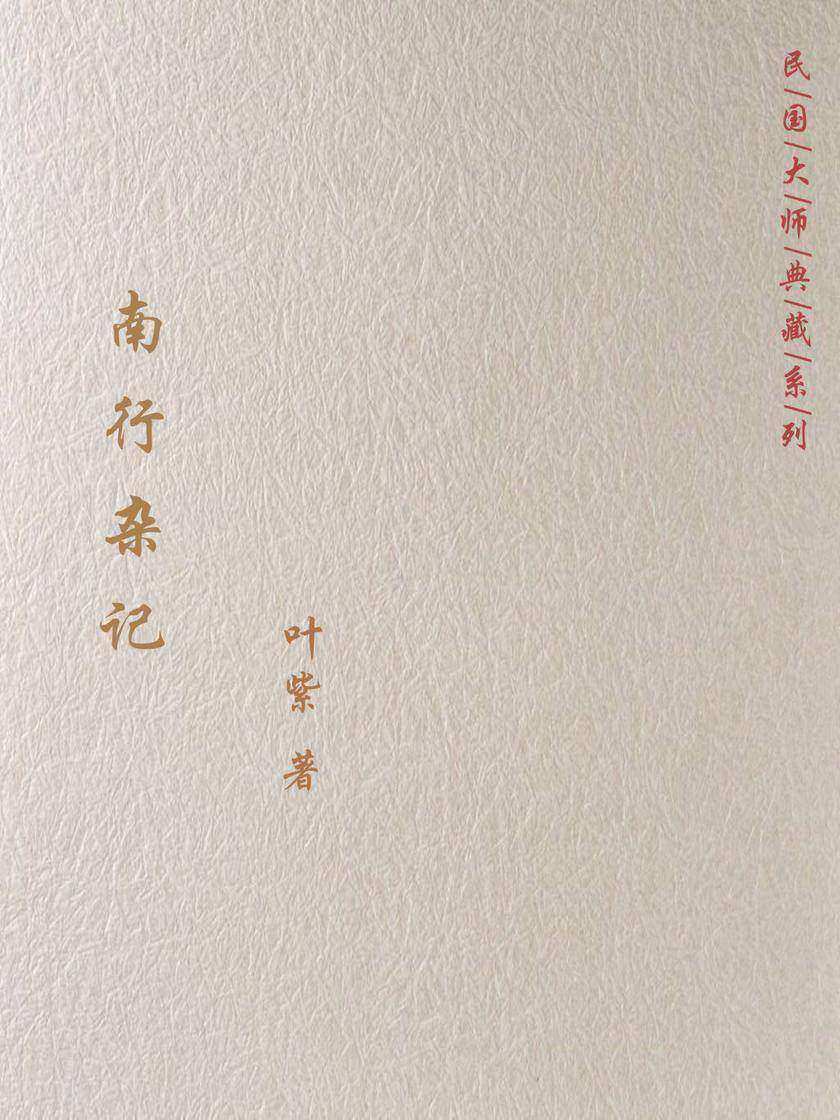 民/国/大/师/典/藏/系/列
南行杂记
叶紫 著